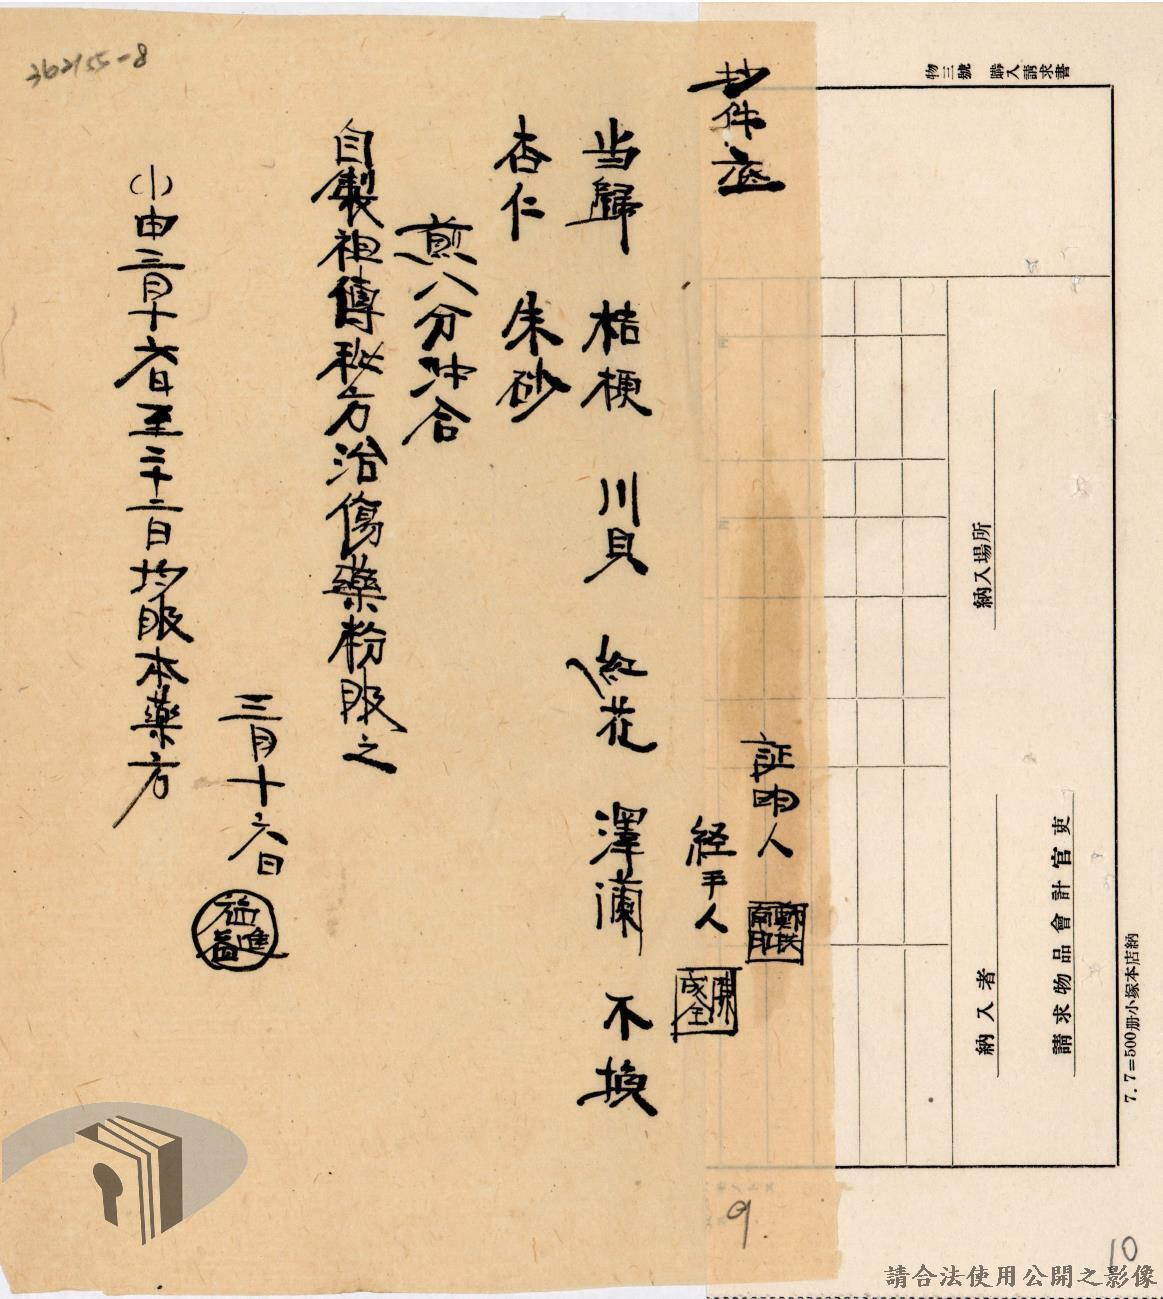 物三號 購入請求書
納入場所
請求物品會計官吏
納入者
7.7=500册小塚本店納
10
抄件底
証明人
経手人
陳成全
当歸 桔梗 川貝 紅花 澤蘭 不換
杏仁 朱砂
煎八分沖合
自製祖傳秘方治傷藥粉服之
三月十六日
(1)由三月十六日至三十二日均服本藥方
362155-8
9
請合法使用公開之影像